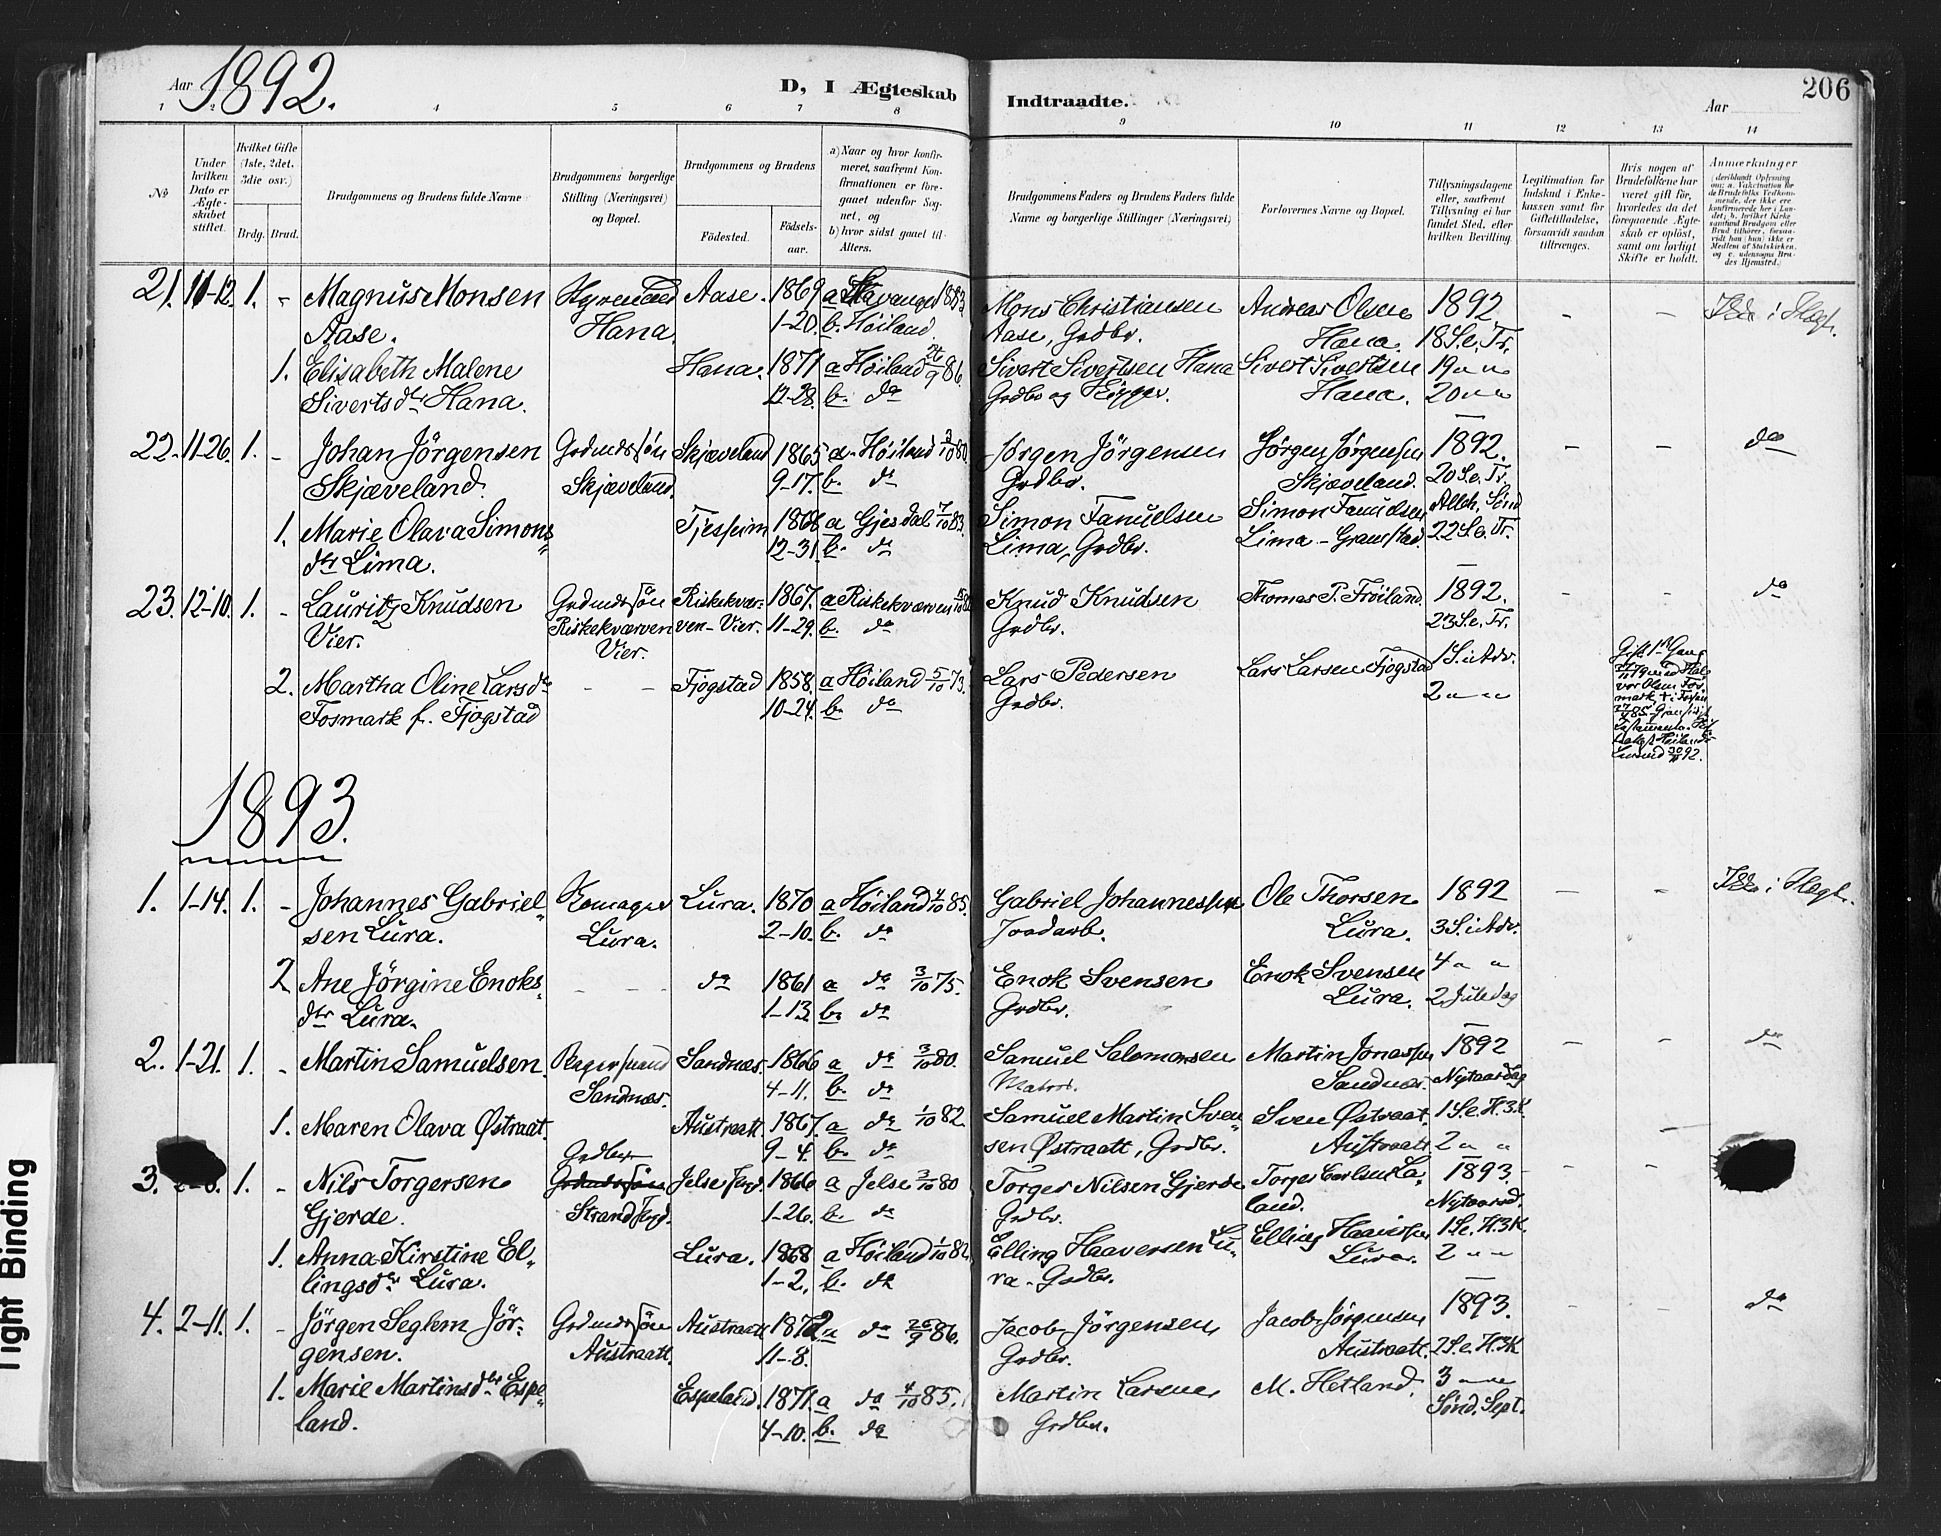 Aar 1892. D, I Ægteskab Indtraadte. Aar 206
1 2 4 5 6 7 8 9 10 11 12 13 14
No
Under hvilken Dato er Ægteskabet stiftet.
Hvilket Gifte (1ste, 2det, 3die osv.)
Brdg. Brud.
Brudgommens og Brudens fulde Navne
Brudgommens borgerlige Stilling (Næringsvei) og Bopæl.
Brudgommens og Brudens
Fødested. Fødselsaar.
a) Naar og hvor konfirmeret, saafremt Konfirmationen er foregaaet udenfor Sognet, og
b) hvor sidst gaaet til Alters.
Brudgommens Faders og Brudens Faders fulde Navne og borgerlige Stillinger (Næringsvei)
Forlovernes Navne og Bopæl.
Tillysningsdagene eller, saafremt Tillysning ei har fundet Sted, efter hvilken Bevilling.
Legitimation for Indskud i Enkekassen samt for Giftetilladelse, forsaavidt saadan tiltrænges.
Hvis nogen af Brudefolkene har været gift før, hvorledes da det foregaaende Ægteskab er opløst, samt om lovligt Skifte er holdt.
Anmærkninger
21. 11-12. 1. - Magnus Monsen Aase. 1869 a Stavanger 1883 Mons Christiansen Andreas Olsen 1892 - -
Aase. Hana. 1-20. b. Høiland. Aase, Grdbr. Hana. 18 S. e. Tr.
1. Elisabeth Malene Hana. 1871 a Høiland 86. Sivert Sivertsen Hana Sivert Sivertsen 19 " "
Siverts dtr Hana. 12-28. b. do Grdbr og Hana. 20 " "
22. 11-26. 1. - Johan Jörgensen Grdmdssøn Skjæveland 1865 a Høiland 3/10 80. Jørgen Jörgensen Jørgen Jørgensen 1892. - - do
Skjæveland. Skjæveland. 9-17. b. do Grdbr. Skjæveland. 20 S. e. Tr.
1. Marie Olava Simons= Tjessheim 1866 a Gjesdal 7/10 83. Simon Fanuelsen Simon Fanuelsen Alleh. Sönd
dtr Lima. 12-31. b. do Lima, Grdbr. Lima - 22 S. e. Tr.
23. 12-10. 1. - Lauritz Knudsen Grdmdssøn Riskekvær- 1867. a Riskekværven Knud Knudsen Thomas P. Frøiland. 1892. - - do
Vier. Riskekværven Vier. ven-Vier. 11-29. b. do Grdbr. 23 S. e. Tr.
2. Martha Oline Larsdr - - Fjogstad 1858. a Høiland 5/10 73. Lars Pedersen Lars Larsen Fjogstad 1 S. i Adv.
Fosmark f. Fjogstad 10-24. b. do Grdbr. 2 " "
Gift 1ste Gang
1893.
1. 1-14. 1. - Johannes Gabriel= Lura. 1870 a Høiland 4/10 85. Gabriel Johannessen Ole Thorsen 1892 - -
sen Lura. Lura. 2-10. b. do Jordarb. Lura. 3 S. i Adv.
2 Ane Jörgine Enoks= - - - do 1861 a do 3/10 75. Enok Svensen Enok Svensen 4 " "
dtr Lura. 1-13. b. do Grdbr. Lura. 2 Juledag
2. 1-21. 1. - Martin Samuelsen. Sandnæs. 1866 a do 3/10 80. Samuel Salomonsen Martin Jonassen 1892 - - do
Sandnæs. 4-11. b. do Matros. Sandnæs. Nytaarsdag
1. Maren Olava Østraat. Austraatt. 1867. a do 1/10 82. Samuel Martin Sven= Sven Østraat. 1 S. e. H. 3 K
9-4. b. do sen Østraatt, Grdbr. Austraatt. 2 " "
3. 1. - Nils Torgersen Grdbr Jelse 1866 a Jelse 3/10 80 Torger Nilsen Gjerde 1893. - -
Gjerde. Strand 1-26. b. do Grdbr. land. Nytaarsd.
1. Anna Kirstine El= Lura. 1868 a Høiland 1/10 82. Elling Haaversen Lu= Elling 1 S. e. H. 3 K
lingsdr Lura. 1-2. b. do ra - Grdbr. Lura. 2 " "
4. 2-11. 1. - Jörgen Seglem Jör= Grdmdssøn Austraatt 1872 a do 26/9 86. Jacob Jörgensen Jacob Jørgensen 1893. - - do
gensen. Austraatt. 11-8. Grdbr. Austraatt. 2 S. e. H. 3 K
1. Marie Martinsdtr Espe= Espeland. 1871. a do 4/10 85. Martin Larsen M. Hetland. 3 " "
land. 4-10. b. do Grdbr. Sønd. Sept.
Tight Binding